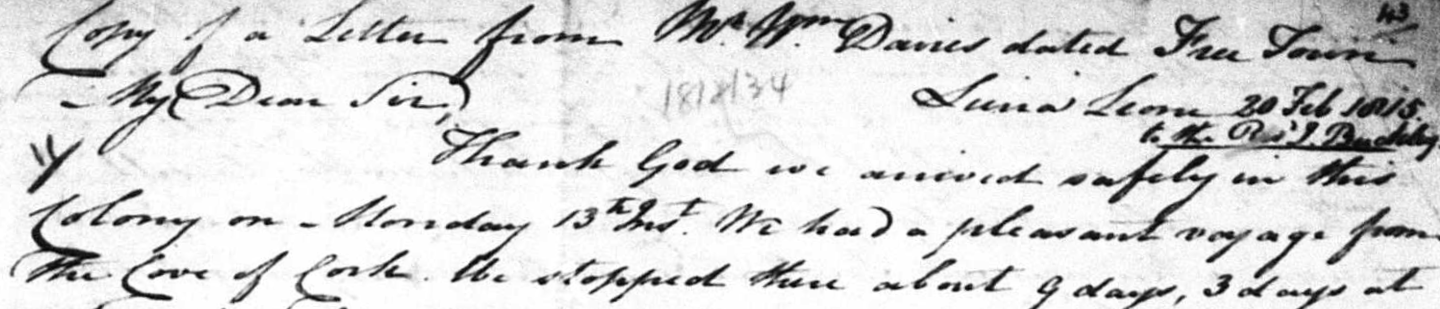 143
Copy of a Letter from Mr. Wm. Davies dated Free Town
My Dear Sir, Sierra Leone 20 Feb 1815.
to the Revd J. Buckley
Thank God we arrived safely in this
Colony on Monday 13th Inst. We had a pleasant voyage from
the Cove of Cork. We stopped there about 9 days, 3 days at